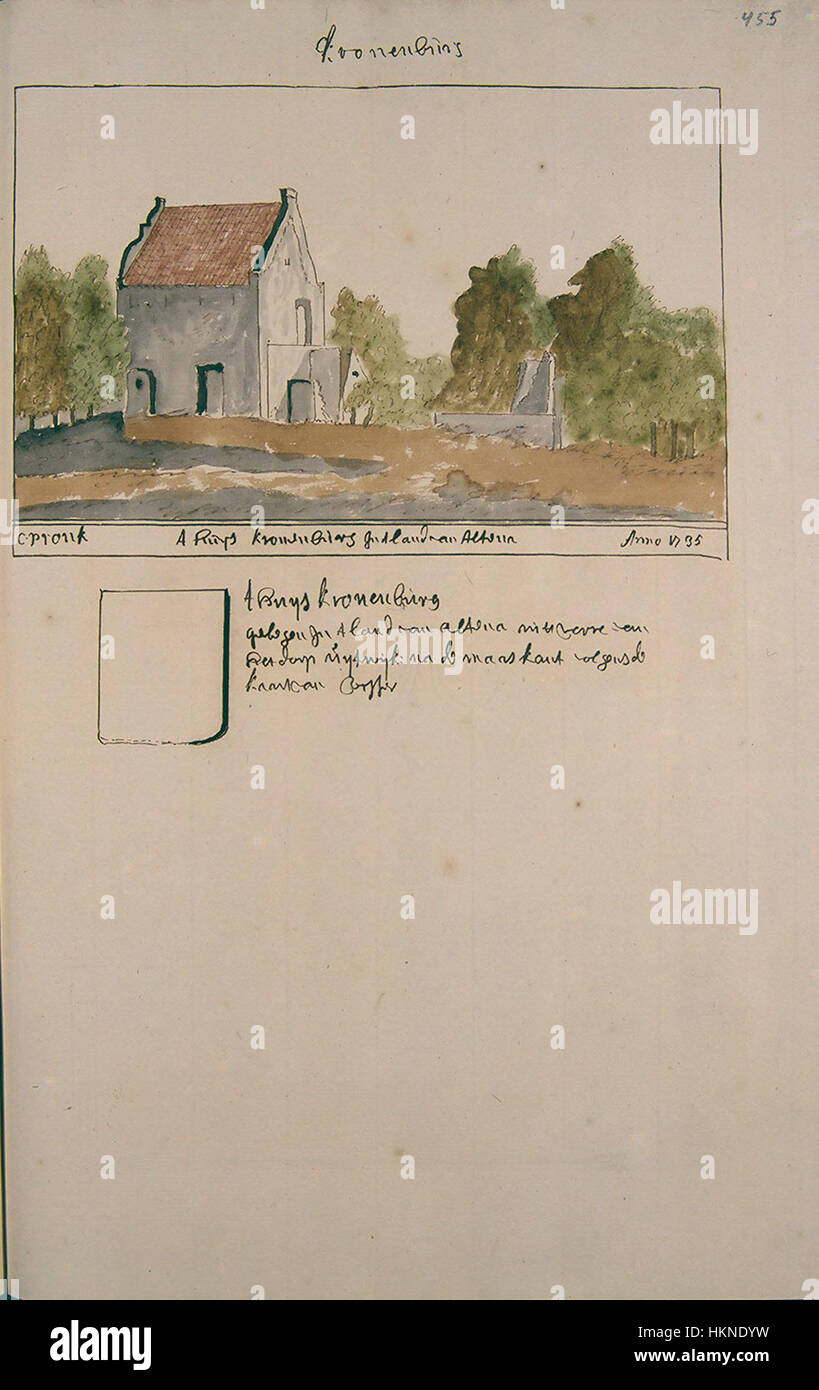 455
Kronenburg
C. Pronk 't Huys Kronenburg In 't land van Altena Anno 1735
't Huys Kronenburg
gelegen In 't land van altena niet verre van
het dorp uytwyk na de maaskant volgens de
kaart van
a alamy
Image ID: HKNDYW
www.alamy.com